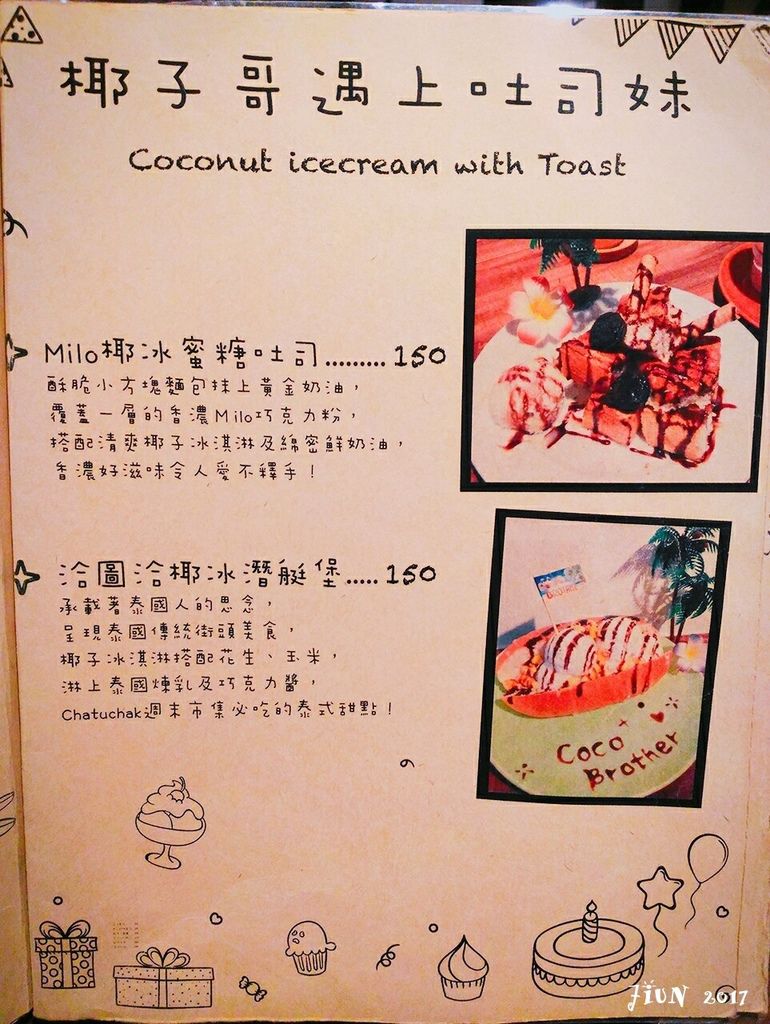 椰子哥遇上吐司妹
Coconut icecream with Toast
Milo椰冰蜜糖吐司......... 150
酥脆小方塊麵包抹上黃金奶油，
覆蓋一層的香濃Milo巧克力粉，
搭配清爽椰子冰淇淋及綿密鮮奶油，
香濃好滋味令人愛不釋手！
洽圖洽椰冰潛艇堡..... 150
承載著泰國人的思念，
呈現泰國傳統街頭美食，
椰子冰淇淋搭配花生、玉米，
淋上泰國煉乳及巧克力醬，
Chatuchak週末市集必吃的泰式甜點！
Coco
Brother
JIUN 2017